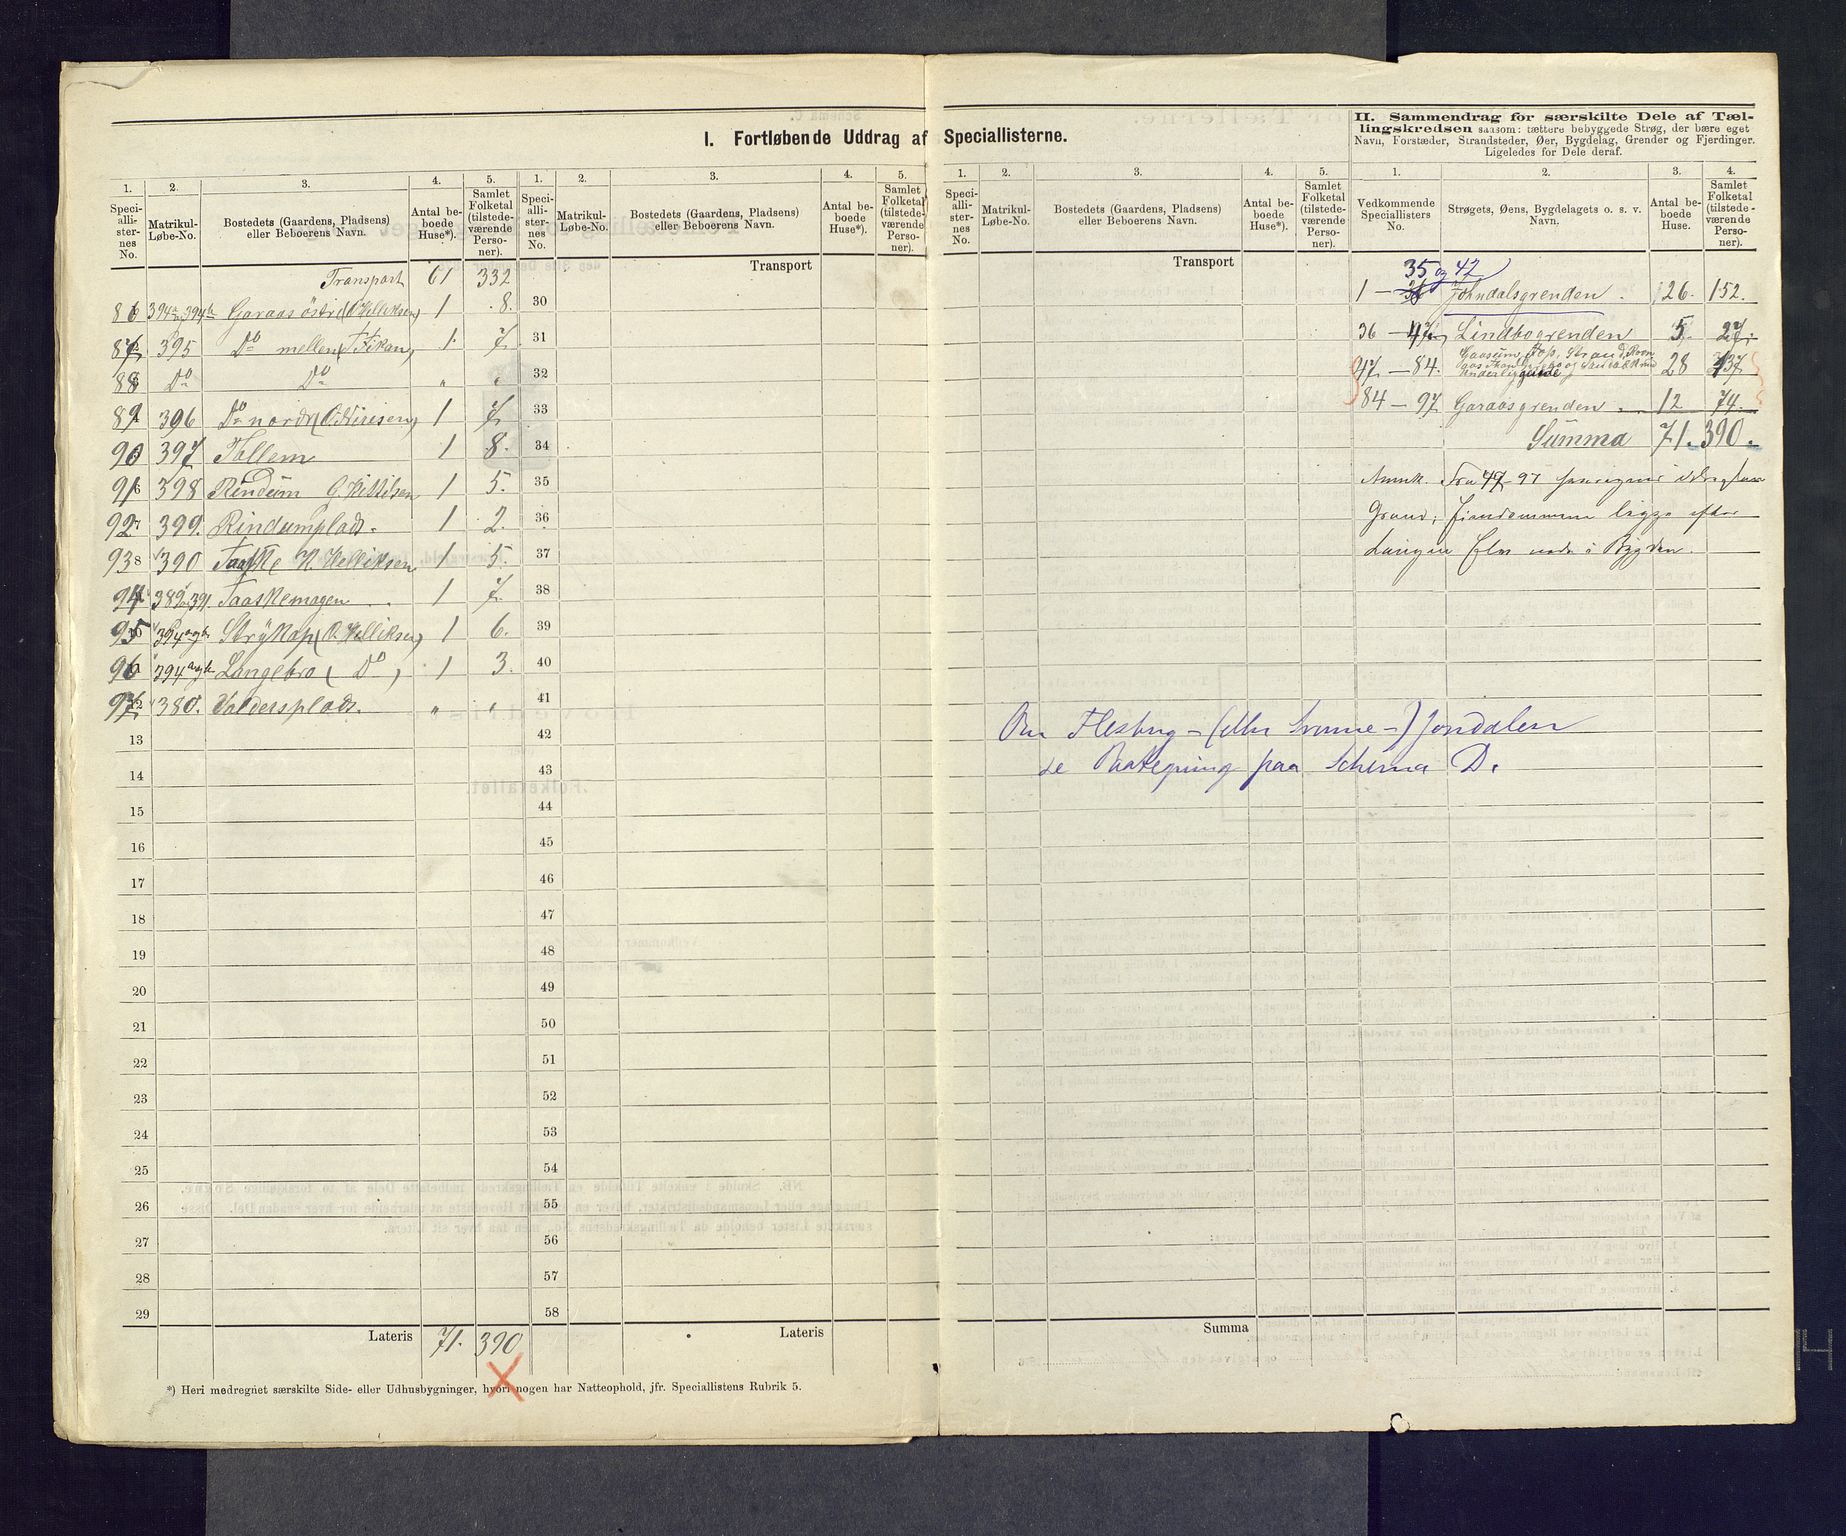 I. Fortløbende Uddrag af Speciallisterne.
II. Sammendrag for særskilte Dele af Tæl-
lingskredsen saasom: tættere bebyggede Strøg, der bære eget
Navn, Forstæder, Strandsteder, Øer, Bygdelag, Grender og Fjerdinger.
Ligeledes for Dele deraf.
1. 2. 3. 4. 5.
Speci-alli-ster-nes No. Matrikul-Løbe-No. Bostedets (Gaardens, Pladsens) eller Beboerens Navn. Antal be-boede Huse*). Samlet Folketal (tilstede-værende Perso-ner).
Transport 61 332
86 394a 394b Garaas östre (O. Helliksen) 1 8.
87 395 Do mellem 1 7
88 Do Do " "
89 396 Do nordr 1 7
90 397 Tollem 1 8.
91 398 Rindum O. Kittilsen 1 5.
92 399. Rindumplads. 1 2.
93 390 Taaske H. Helliksen 1 5.
94 389 391. Taaskemogen 1 7.
95 394 a og b Strykop (O. Helliksen) 1 6.
96 394 a og b Langebro (Do) 1 3.
97 380. Valdersplads. " "
13
14
15
16
17
18
19
20
21
22
23
24
25
26
27
28
29
Lateris 71. 390
*) Heri medregnet særskilte Side- eller Udhusbygninger, hvori nogen har Natteophold, jfr. Speciallistens Rubrik 5.
1. 2. 3. 4. 5.
Speci-alli-ster-nes No. Matrikul-Løbe-No. Bostedets (Gaardens, Pladsens) eller Beboerens Navn. Antal be-boede Huse*). Samlet Folketal (tilstede-værende Perso-ner).
Transport
30
31
32
33
34
35
36
37
38
39
40
41
42
43
44
45
46
47
48
49
50
51
52
53
54
55
56
57
58
Lateris
1. 2. 3. 4. 5.
Speci-alli-ster-nes No. Matrikul-Løbe-No. Bostedets (Gaardens, Pladsens) eller Beboerens Navn. Antal be-boede Huse*). Samlet Folketal (tilstede-værende Perso-ner).
Transport
Om Flesberg - (eller Svenne -) Jondalen
se Paategning paa Schema D.
Summa
1. 2. 3. 4.
Vedkommende Speciallisters No. Strøgets, Øens, Bygdelagets o. s. v. Navn. Antal be-boede Huse. Samlet Folketal (tilstede-værende Perso-ner).
35 og 42
1 - Johndalsgrenden. 26. 152.
36 - 47 Lindbogrenden 5. 27.
47 - 84. 28 137
84 - 97 Garaasgrenden 12 74.
Summa 71. 390.
Anmk. Fra 47-97
Grand; Eiendommene ligge efter
Laagen Elv nede i Bygden.